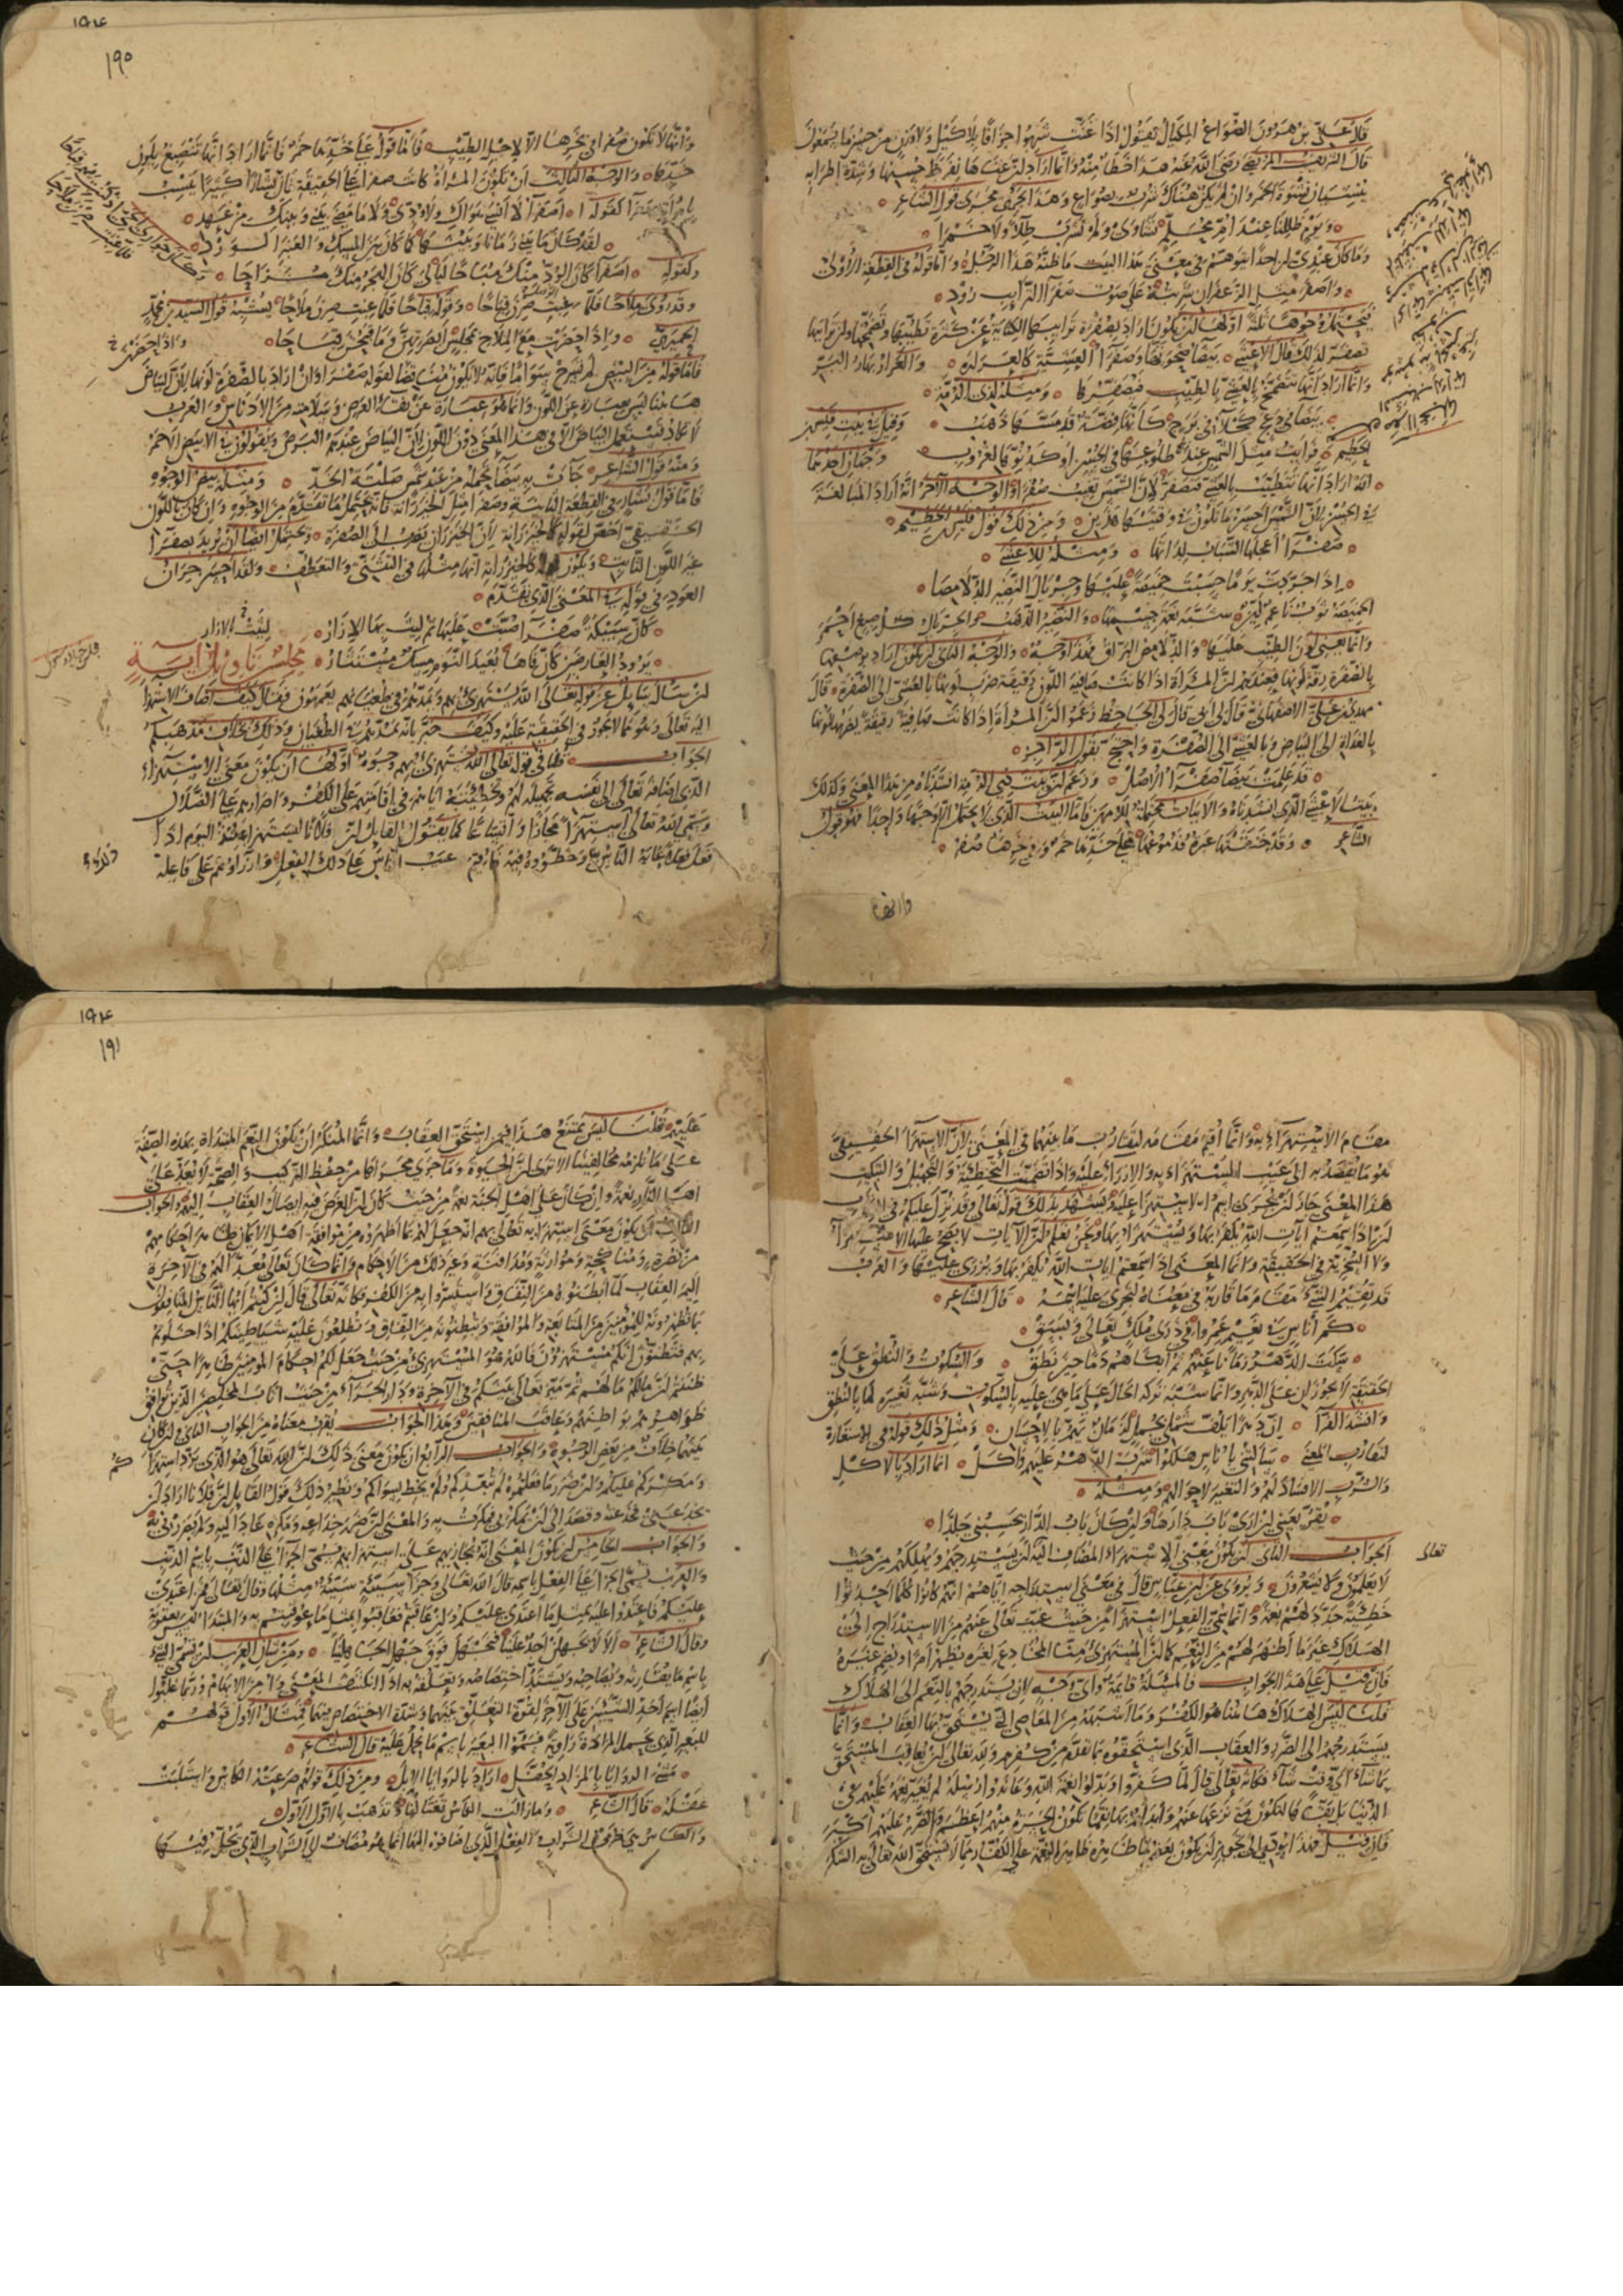 قال علي بن هرون الصواع المكيال يقول اذا غنت شربوا جزافا بلا كيل ولا وزن من حسن ما يسمعون
قال الشريف المرتضى رضي الله عنه هذا خطأ منه وانما اراد لن غناءها لفرط حسنها وشدة اطرابه
ينسيان نشوة الخمر وان لم يكن هناك شرب بصواع وهذا يجري مجرى قول الشاعر
ويوم ظللنا عند ام محلم نشاوى ولم نشرب طلاء ولا خمرا
وما كان عندي لن احدا يتوهم في معنى هذا البيت ما ظنه هذا الرجل وانما قوله في القطعة الاولى
واصفر مثل الزعفران شربته على صوت صفراء الترايب رود
فيحتمل وجوها ثلثة اولها لن يكون اراد بصفرة ترايبها الكناية عن كثرة تطيبها وتضمخها ولن ترايبها
تصفر لذلك قال الاعشى بيضا ضحوتها وصفراء العشية كالعراره والعرار بهار البر
وانما اراد انها تتضمخ بالعشي بالطيب فتصفرها ومثله لذي الرمة
بيضا في دعج كحلاء في برج كانها فضة قد مسها ذهب وقيل في بيت قيس بن
الخطيم فرايت مثل الشمس عند طلوعها في الحسن او كدنوها لغروب وجهان احدهما
انه اراد انها تتطيب بالعشي فتصفر لان الشمس تغيب صفراء والوجه الآخر انه اراد المبالغة
في الحسن لان الشمس احسن ما تكون في وقتيها هذين ومن ذلك قول قيس بن الخطيم
صفراء اعجلها الشباب لداتها ومثله للاعشى
اذا جردت يوما حسبت خميصة عليها وجريال النضير الدلامصا
الخميصة ثوب ناعم لين شبه به نعمة جسمها والنضير الذهب والجريال كل صبغ احمر
وانما يعني لون الطيب عليها والدلامص البراق فهذا وجه والوجه الثاني لن يكون اراد بوصفها
بالصفرة رقة لونها فعندهم لن المراة اذا كانت صافية اللون رقيقة ضرب لونها بالعشي الى الصفرة قال
مهدي بن علي الاصفهاني قال لي ابي قال لي الجاحظ زعموا لن المراة اذا كانت صافية رقيقة يضرب لونها
بالغداة الى البياض وبالعشي الى الصفرة واحتج بقول الراجز
قد علمت بيضاء صفراء الاصل وزعم لن بيت ذي الرمة الذي انشدناه من هذا المعنى وكذلك
بيت الاعشى الذي انشدناه والابيات محتملة للامرين فاما البيت الذي لا يحتمل الا وجها واحدا فهو قول
الشاعر وقد خنقتها عبرة فدموعها على خدها حمر وفي نحرها صفر
١٩٤
١٩٠
وانها لا تكون صفرا في نحرها الا لاجل الطيب فاما قوله على خدها حمر فانما اراد انها تنصبغ بلون
خدها والوجه الثالث ان تكون المراة كانت صفراء على الحقيقة فان بشارا كثيرا يشبب
بامراة صفراء كقوله اصفراء لا انسى هواك ولا ودي ولا ما مضى بيني وبينك من عهد
لقد كان ما بيني زمانا وبينها كما كان بين المسك والعنبر الورد
وكقوله اصفراء كان الود منك مباحا ليالي كان الهجر منك مزاحا
وقد روى ملاحا فلما عبن صرن قباحا وقوله قباحا فلما عبت صرن ملاحا يشبه قول السيد بن محمد
الحميري واذا حضرن مع الملاح بمجلس ابصرتهن وما قبحن قباحا
فاما قوله من البيض لم تسرح سواما فانه لا يكون مناقضا لقوله صفراء وان اراد بالصفرة لونها لان البياض
هاهنا ليس بعبارة عن اللون وانما هو عبارة عن نقاء العرض وسلامته من الادناس والعرب
لا تكاد تستعمل البياض الا في هذا المعنى دون اللون لان البياض عندهم البرص ويقولون في الابيض الاحمر
ومنه قول الشاعر جاءت به بيضاء تحمله من عبد شمس صلتة الخد ومثله بيض الوجوه
فاما قول بشار في القطعة الثانية وصفراء مثل الخيزرانة فانه يحتمل ما تقدم من الوجوه وان كان باللون
الحقيقي اخص لقوله كالخيزرانة لان الخيزران يضرب الى الصفرة ويحتمل ايضا ان يريد بصفراء
غير اللون الثابت ويكون كالخيزرانة انها مثلها في التثني والتعطف ولقد احسن جران
العود في قوله في المعنى الذي تقدم
كان سبيكة صفراء صبت عليها ثم ليث بها الازار
برود العارضين كان فاها بعيد النوم مسك مستثار مجلس تاويل آية
لن سال سايل عن قوله تعالى الله يستهزئ بهم ويمدهم في طغيانهم يعمهون فقال كيف اضاف الاستهزا
اليه تعالى وهو مما لا يجوز في الحقيقة عليه وكيف خبر بانه يمدهم في الطغيان وذلك بخلاف مذهبكم
الجواب قلنا في قوله تعالى الله يستهزئ بهم وجوه اولها ان يكون معنى الاستهزاء
الذي اضافه تعالى الى نفسه تجهيله لهم وتخطئته اياهم في اقامتهم على الكفر واصرارهم على الضلال
وسمى الله تعالى استهزاء مجازا واتساعا كما يقول القايل لن فلانا ليستهزا به منذ اليوم اذا
فعل فعلا عابه الناس به وخطؤوه فيه فاقيم عيب الناس على ذلك الفعل وازراؤهم على فاعله
مقام الاستهزاء به وانما اقيم مقامه لتقارب ما بينهما في المعنى لان الاستهزا الحقيقي
هو ما يقصد به الى عيب المستهزا به والازراء عليه واذا تضمنت التخطئة والتجهيل والتبكيت
هذا المعنى جاز لن يجري عليهم اسم الاستهزا عليه ويستشهد بذلك قوله تعالى وقد نزل عليكم في الكتاب
لن اذا سمعتم ايات الله يكفر بها ويستهزا بها ونحن نعلم لن الآيات لا يصح عليها الاستهزاء
ولا السخرية في الحقيقة وانما المعنى اذا سمعتم ايات الله يكفر بها ويزرى عليها والعرب
قد تقيم الشيء مقام ما قاربه في معناه لتجري عليه اسمه قال الشاعر
كم اناس في نعيم عمروا في ذرى ملك تعالى وبسق
سكت الدهر زمانا عنهم ثم ابكاهم دما حين نطق والسكوت والنطق على
الحقيقة لا يجوزان على الدهر وانما شبه تركه الحال على ما هي عليه بالسكوت وشبه تغييره لها بالنطق
وانشد الفراء ان دهرا يلف شملي بجمل لزمان يهم بالاحسان ومثل ذلك قوله في الاستعارة
لتقارب المعنى سالتني باناس هلكوا شرب الدهر عليهم واكل انما اراد بالاكل
والشرب الافساد لهم والتغيير لاحوالهم ومثله
يقر بعيني لن ارى باب دارها ولن كان باب الدار يحسبني جلدا
الجواب الثاني لن يكون معنى الاستهزاء المضاف اليه لن يستدرجهم ويهلكهم من حيث
لا يعلمون ولا يشعرون ويروى عن ابن عباس قال في معنى استدراجه اياهم انهم كانوا كلما احدثوا
خطيئة جدد لهم نعمة وانما سمي هذا الفعل استهزاء من حيث غيب تعالى عنهم من الاستدراج الى
الهلاك غير ما اظهر لهم من النعم كما لن المستهزئ منا المخادع لغيره يظهر امرا ويضمر غيره
فان قيل على هذا الجواب فالمسئلة قايمة واي وجه لان يستدرجهم بالنعم الى الهلاك
قلنا ليس الهلاك هاهنا هو الكفر وما اشبهه من المعاصي التي يستحق بها العقاب وانما
يستدرجهم الى الضرر والعقاب الذي استحقوه بما تقدم من كفرهم وله تعالى لن يعاقب المستحق
بما شاء اي وقت شاء فكانه تعالى قال لما كفروا وبدلوا نعمة الله وعاندوا رسله لم يغير نعمه عليهم في
الدنيا بل يبقيها لتكون متى نزعها عنهم وابدلهم بها نقما تكون الحسرة منهم اعظم والضرر عليهم اكثر
فان قيل فهذا يؤدي الى تجويز لن يكون بعض ما ظاهره ظاهر النعمة على الكفار مما لا يستحق الله تعالى به الشكر
تعالى
١٩٤
١٩١
عليهم قلنا ليس يمتنع هذا فيمن استحق العقاب وانما المنكر ان يكون النعم المبتداة بهذه الصفة
على ما يلزمه مخالفينا الا ترى لن الحيوة وما جرى مجراها من حفظ التركيب والصحة لا يعد على
اهل النار نعمة وان كان على اهل الجنة نعمة من حيث كان لن الغرض فيه ايصال العقاب اليهم والجواب
الثالث ان يكون معنى استهزائه تعالى بهم انه جعل لهم بما اظهروه من موافقة اهل الايمان ظاهر احكامهم
من نصرة ومناكحة وموارثة ومدافنة وغير ذلك من الاحكام وانما كان تعالى معدا لهم في الآخرة
اليم العقاب لما ابطنوه من النفاق واستسروا به من الكفر فكانه تعالى قال لن كنتم ايها المنافقون
بما تظهرونه للمؤمنين من المتابعة والموافقة وتبطنونه من النفاق وتطلعون عليه شياطينكم اذا خلوتم
بهم فتظنون انكم مستهزئون فالله هو المستهزئ من حيث جعل لكم احكام المؤمنين ظاهرا حتى
ظننتم لن لكم ما لهم ثم ميز تعالى بينكم في الآخرة ودار الجزاء من حيث اثاب المخلصين الذين توافق
ظواهرهم بواطنهم وعاقب المنافقين وهذا الجواب يقرب معناه من الجواب الثاني ولن كان
بينهما خلاف من بعض الوجوه والجواب الرابع ان يكون معنى ذلك لن الله تعالى هو الذي يرد استهزاءكم
ومكركم عليكم ولن ضرر ما فعلتموه لم يتعدكم ولم يحط بسواكم ونظير ذلك قول القايل لن فلانا اراد لن
يخدعني فخدعته وقصد الى لن يمكر بي فمكرت به والمعنى لن ضرر خداعه ومكره عاد اليه ولم يضررني به
والجواب الخامس لن يكون المعنى انه يجازيهم على استهزائهم فسمى الجزاء على الذنب باسم الذنب
والعرب تسمى الجزاء على الفعل باسمه قال الله تعالى وجزاء سيئة سيئة مثلها وقال تعالى فمن اعتدى
عليكم فاعتدوا عليه بمثل ما اعتدى عليكم ولن عاقبتم فعاقبوا بمثل ما عوقبتم به والمبتدا ليس بعقوبة
وقال الشاعر الا لا يجهلن احد علينا فنجهل فوق جهل الجاهلينا ومن شان العرب لن تسمي الشيء
باسم ما يقاربه ويصاحبه ويشتد اختصاصه وتعلقه به اذا انكشف المعنى وامن الابهام وربما غلبوا
ايضا اسم احد الشيئين على الآخر لقوة التعلق بينهما وشدة الاختصاص فيهما فمثال الاول قولهم
للبعير الذي يحمل المزادة راوية فسموا البعير باسم ما يحمل عليه قال الشاعر
مشي الروايا بالمزاد الاثقل اراد بالروايا الابل ومن ذلك قولهم صرعته الكاس واستلبت
عقله قال الشاعر وما زالت الكاس تغتالنا وتذهب بالاول الاول
والكاس هي ظرف الشراب والفعل الذي اضافوه اليها انما هو مضاف الى الشراب الذي يحل فيها